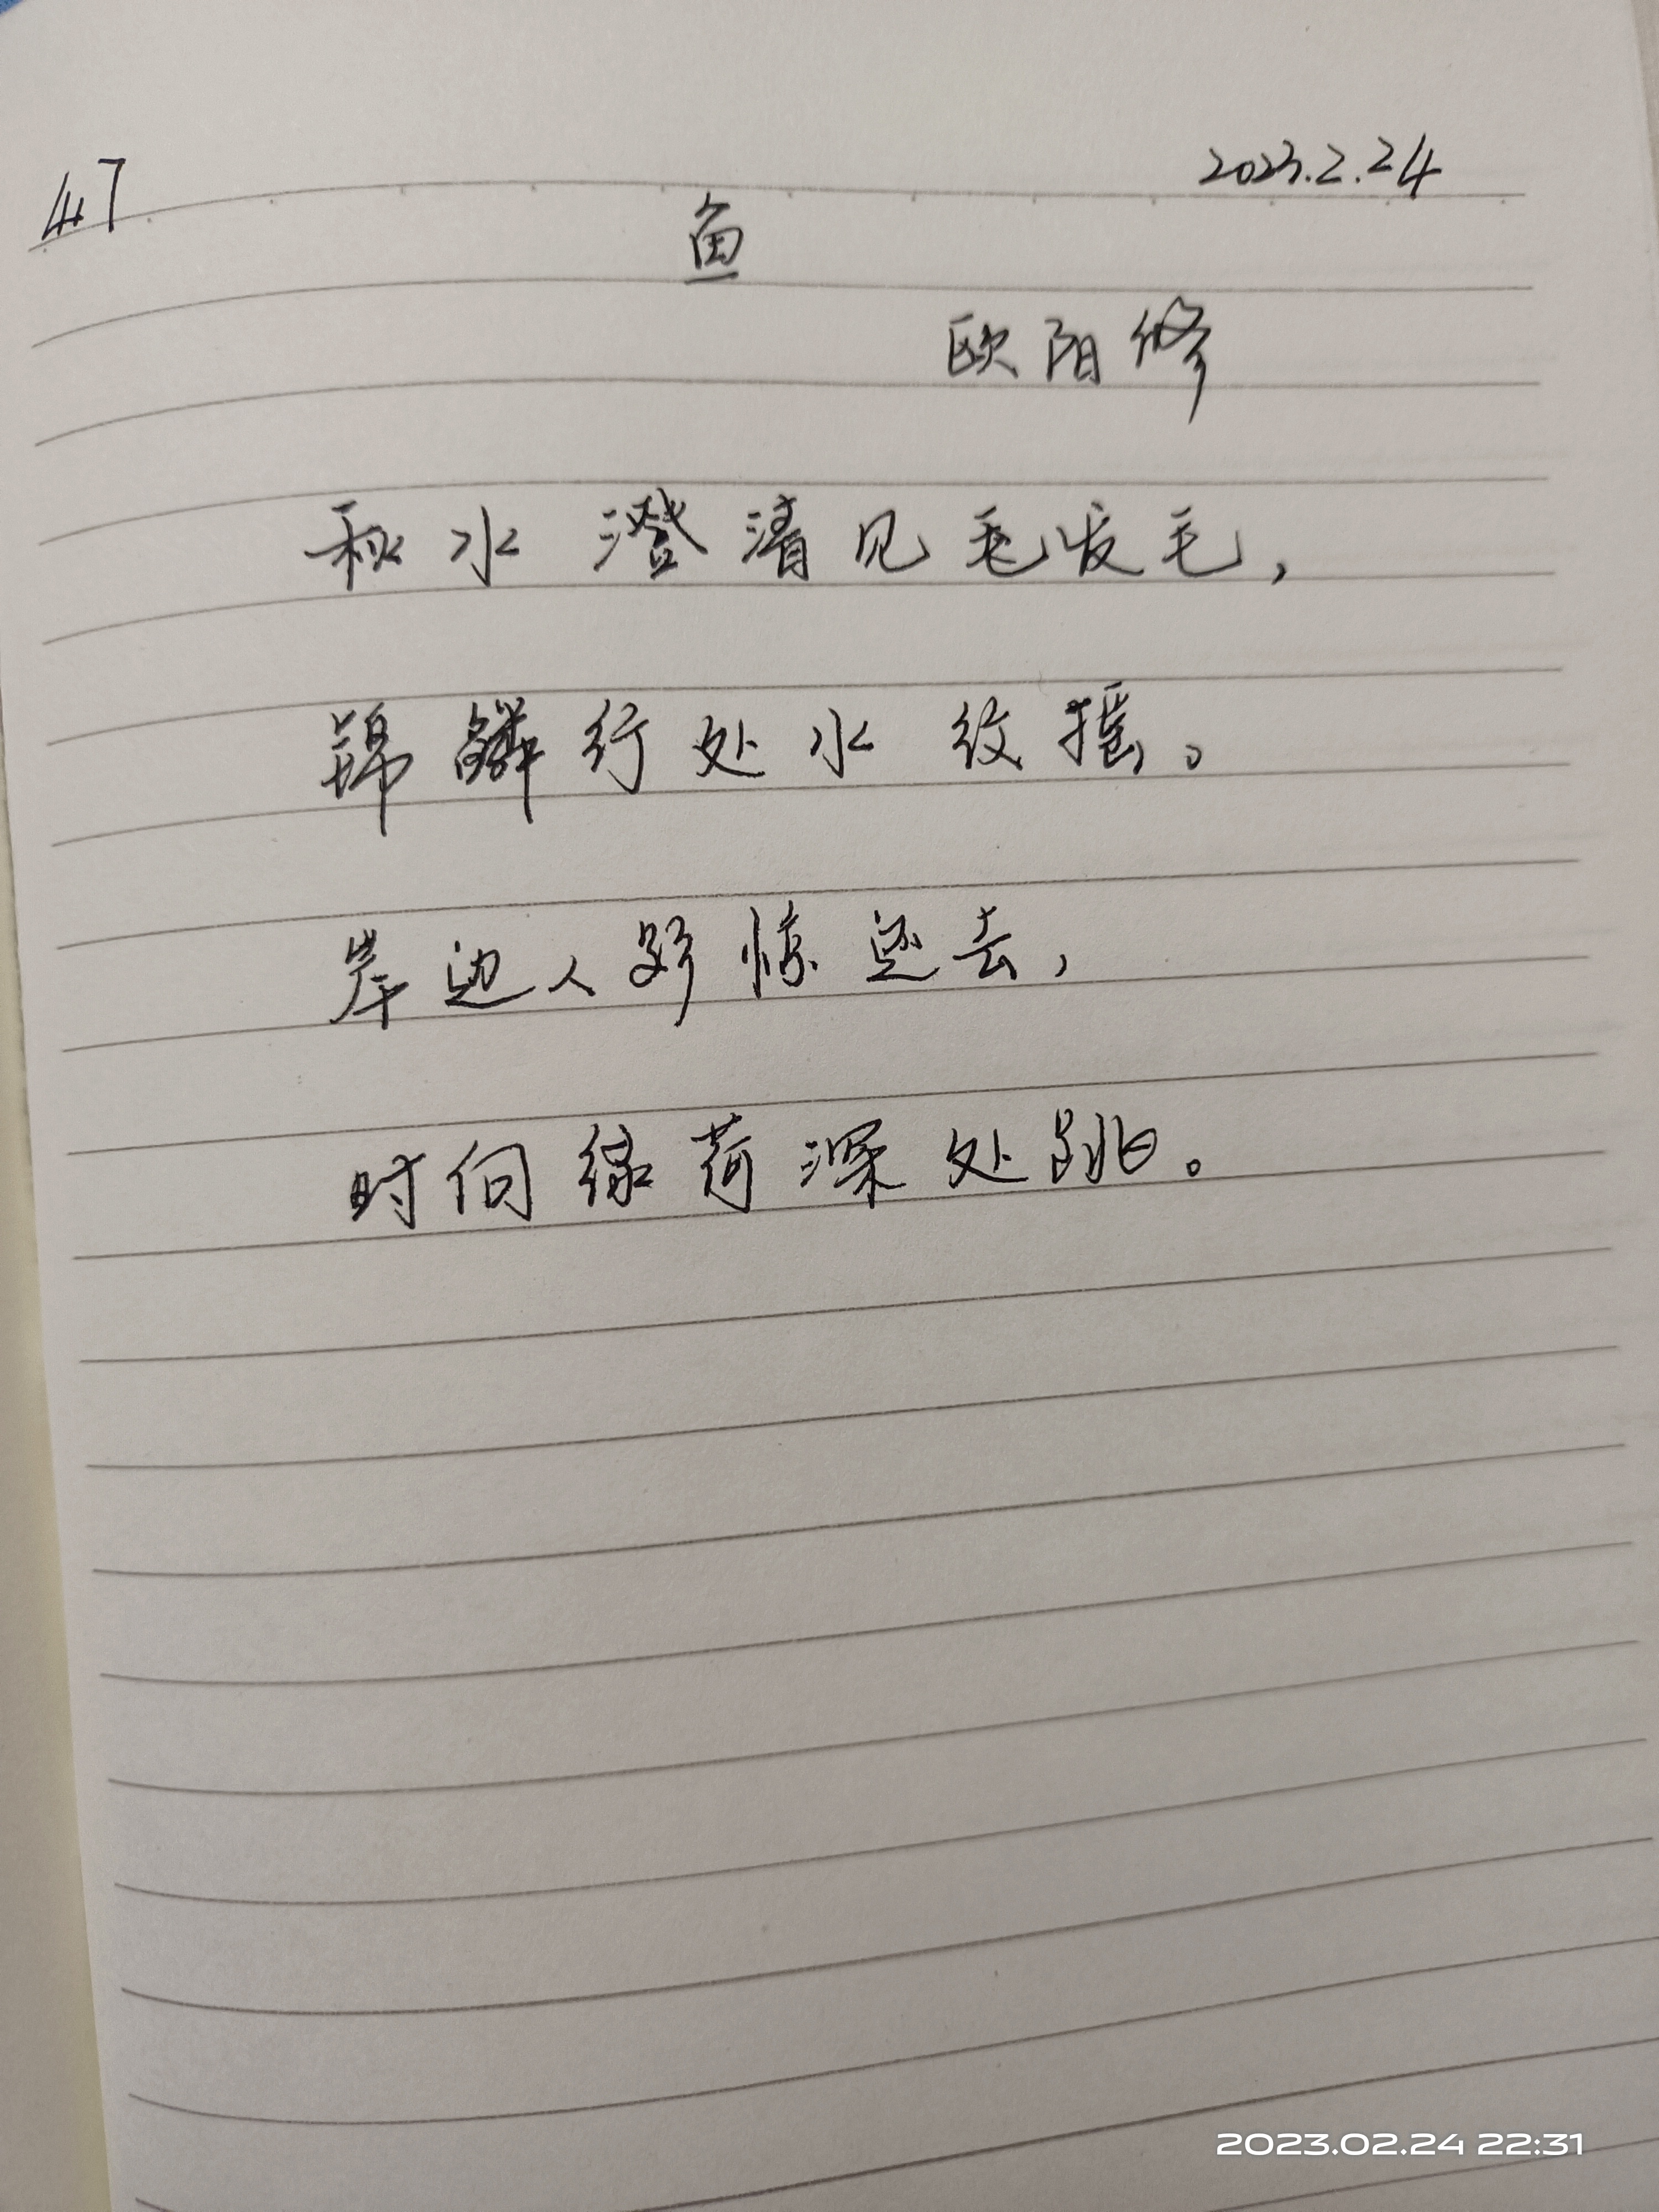 417
2023.2.24
鱼
欧阳修
秋水澄清见毛发毛,
锦鳞行处水纹摇。
岸边人影惊还去,
时向绿荷深处跳。
2023.02.24 22:31